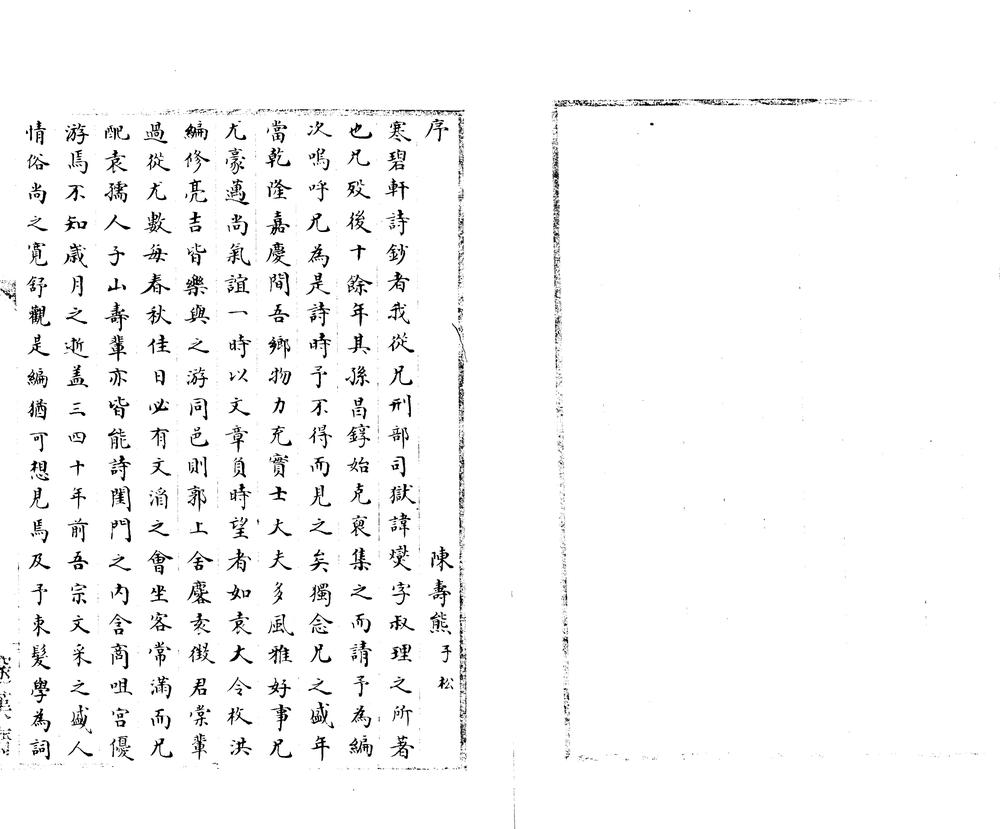 序
陳壽熊子松
寒碧軒詩鈔者我從兄刑部司獄諱爕字叔理之所著
也兄歿後十餘年其孫昌錞始克裒集之而請予為編
次嗚呼兄為是詩時予不得而見之矣獨念兄之盛年
當乾隆嘉慶間吾鄉物力充實士大夫多風雅好事兄
尤豪邁尚氣誼一時以文章負時望者如袁大令枚洪
編修亮吉皆樂與之游同邑則郭上舍麐袁徵君棠輩
過從尤數每春秋佳日必有文酒之會坐客常滿而兄
配袁孺人子山壽輩亦皆能詩閨門之內含商咀宮優
游焉不知歲月之逝盖三四十年前吾宗文采之盛人
情俗尚之寬舒觀是編猶可想見焉及予束髮學為詞